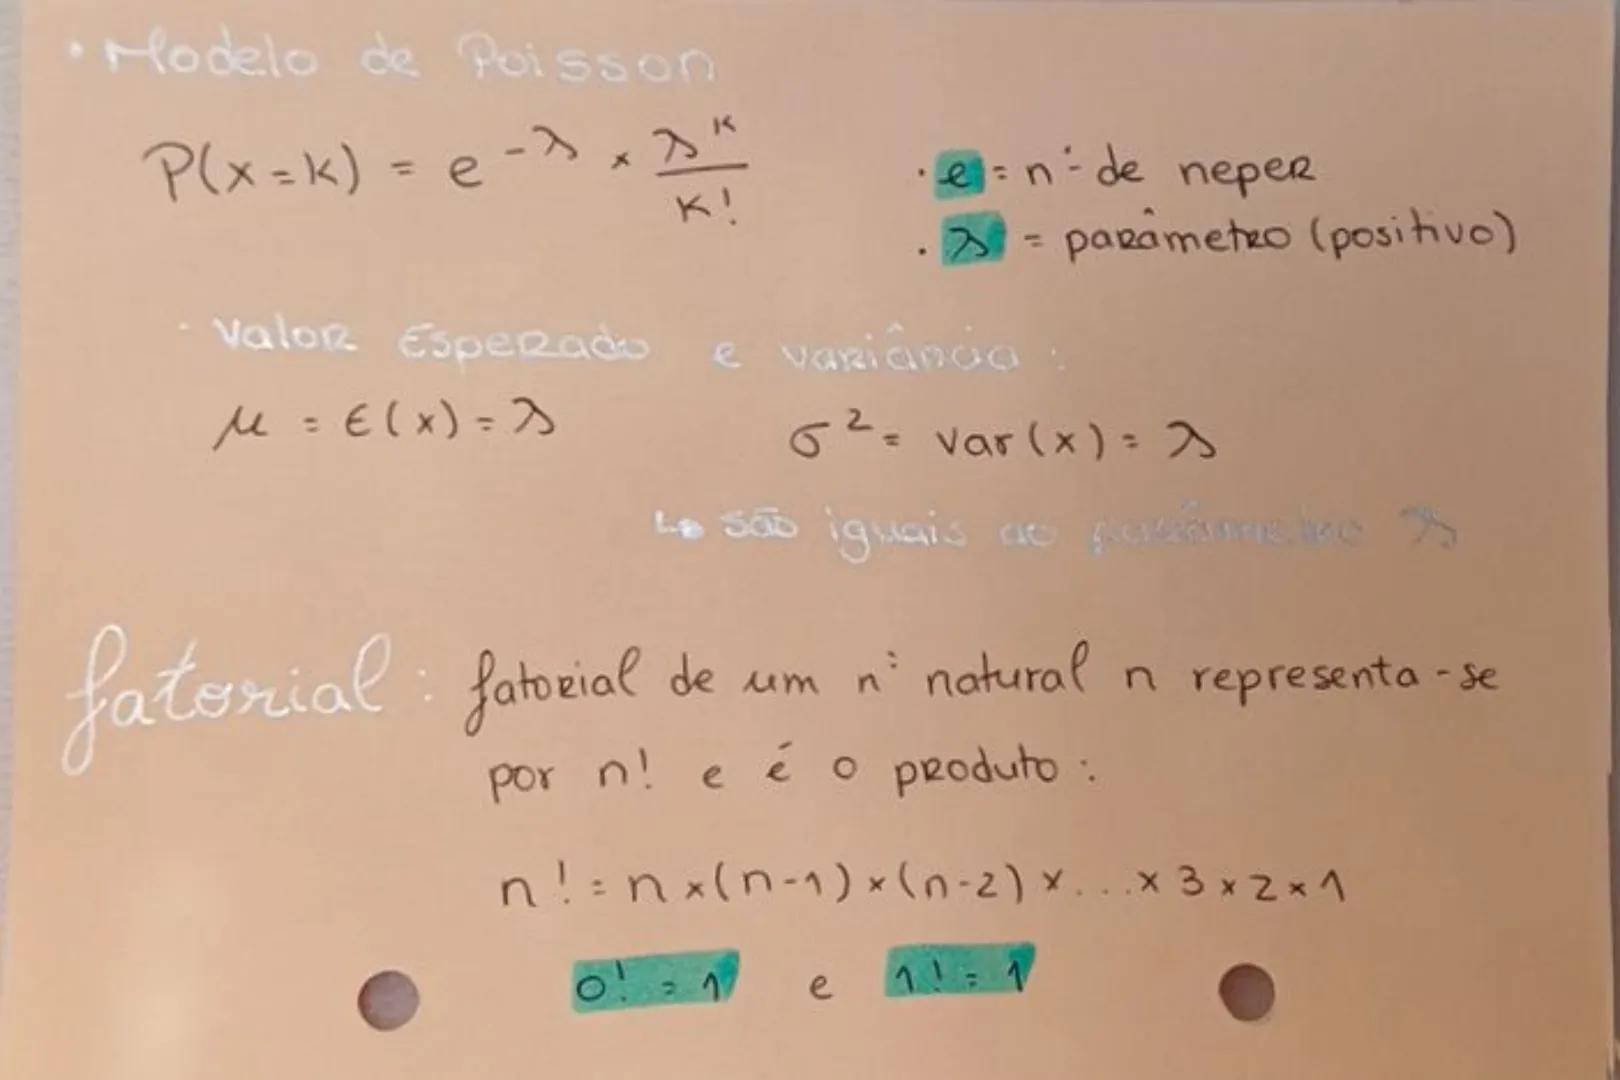 • Modelo de Poisson
P(x=k) = e^-λ × λ^k / k!
• e = nº de neper
• λ = parâmetro (positivo)
• Valor Esperado e variância :
μ = E(x) = λ
σ² = var(x) = λ
↳ são iguais ao parâmetro λ
fatorial : fatorial de um nº natural n representa-se
por n! e é o produto :
n! = n×(n-1)×(n-2)×...×3×2×1
0! = 1 e 1! = 1